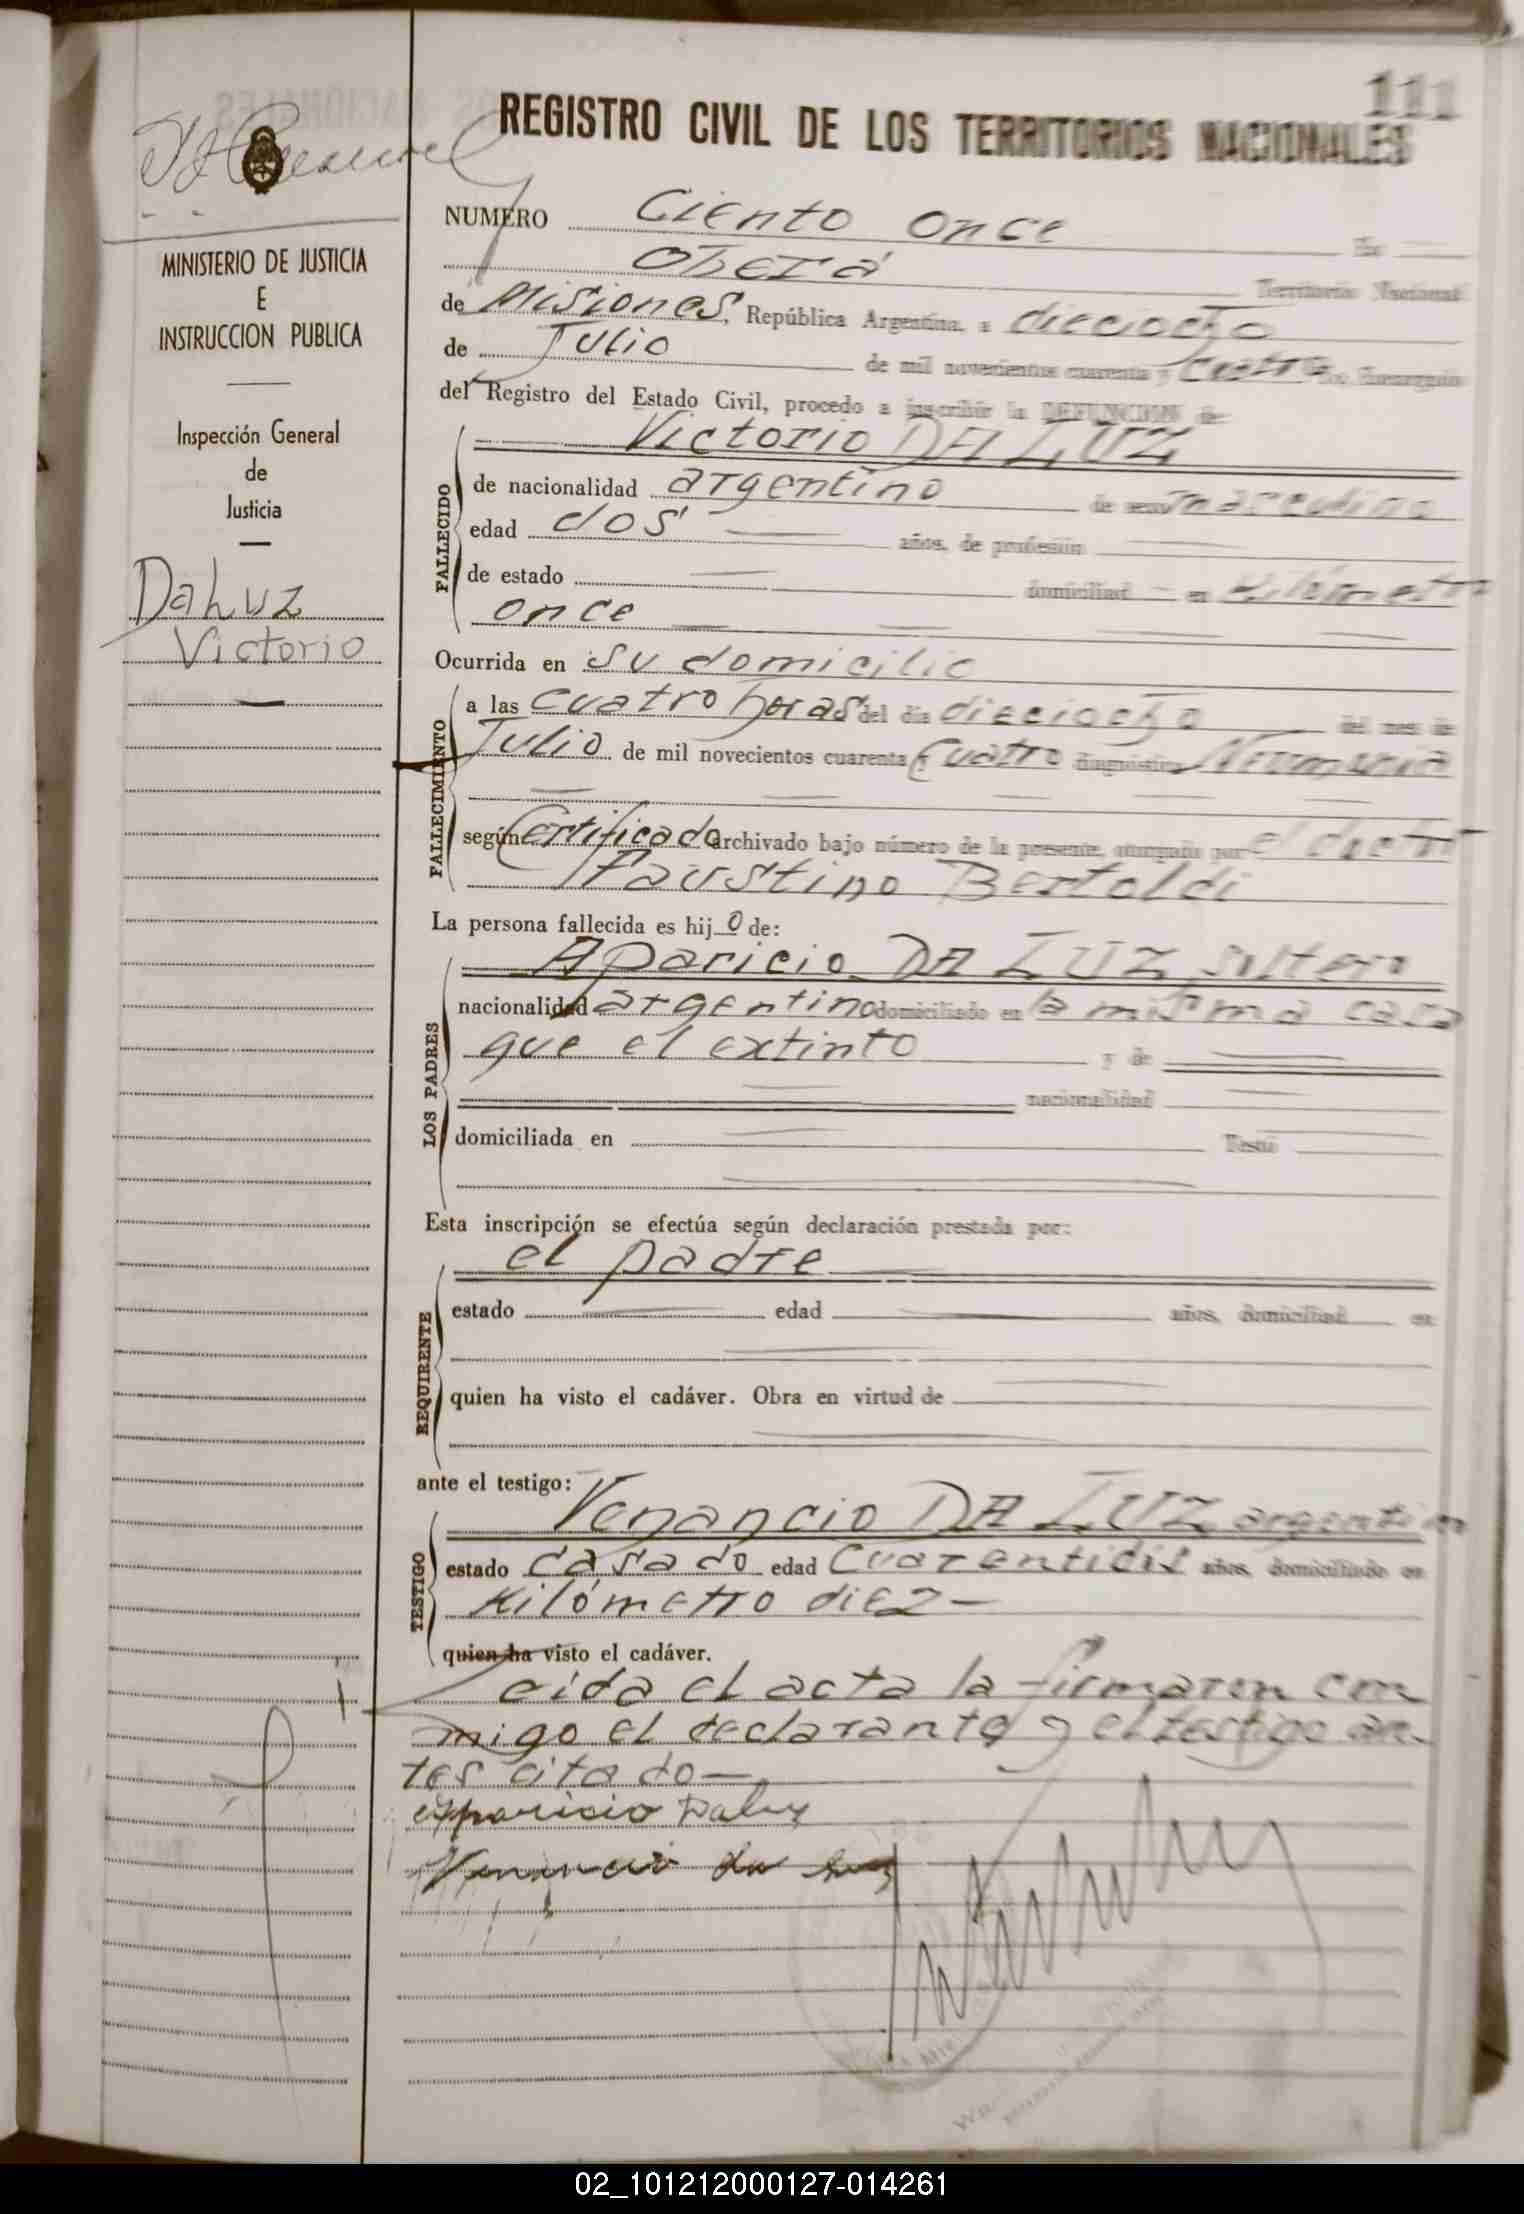 111
REGISTRO CIVIL DE LOS TERRITORIOS NACIONALES
NUMERO Ciento once En
Oberá Territorio Nacional
de Misiones, República Argentina, a dieciocho
de Julio de mil novecientos cuarenta y cuatro Yo Encargado
del Registro del Estado Civil, procedo a inscribir la DEFUNCION de:
FALLECIDO
Victorio DA LUZ
de nacionalidad argentino de sexo masculino
edad dos años, de profesión
de estado domiciliad en Kilómetro
once
Ocurrida en su domicilio
FALLECIMIENTO
a las cuatro horas del día dieciocho del mes de
Julio de mil novecientos cuarenta y cuatro diagnóstico Neumonía
según certificado archivado bajo número de la presente, otorgado por el doctor
Faustino Bertoldi
La persona fallecida es hijo de:
LOS PADRES
Aparicio DA LUZ soltero
nacionalidad argentino domiciliado en la misma casa
que el extinto y de
nacionalidad
domiciliada en Testó
Esta inscripción se efectúa según declaración prestada por:
REQUIRENTE
el padre
estado edad años, domiciliad en
quien ha visto el cadáver. Obra en virtud de
ante el testigo:
TESTIGO
Venancio DA LUZ argentino
estado casado edad cuarentidós años, domiciliado en
Kilómetro diez -
quien ha visto el cadáver.
Leida el acta la firmaron con
migo el declarante y el testigo an-
tes citado —
Aparicio Daluz
Venancio da luz
MINISTERIO DE JUSTICIA
E
INSTRUCCION PUBLICA
Inspección General
de
Justicia
DaLuz
Victorio
02_101212000127-014261